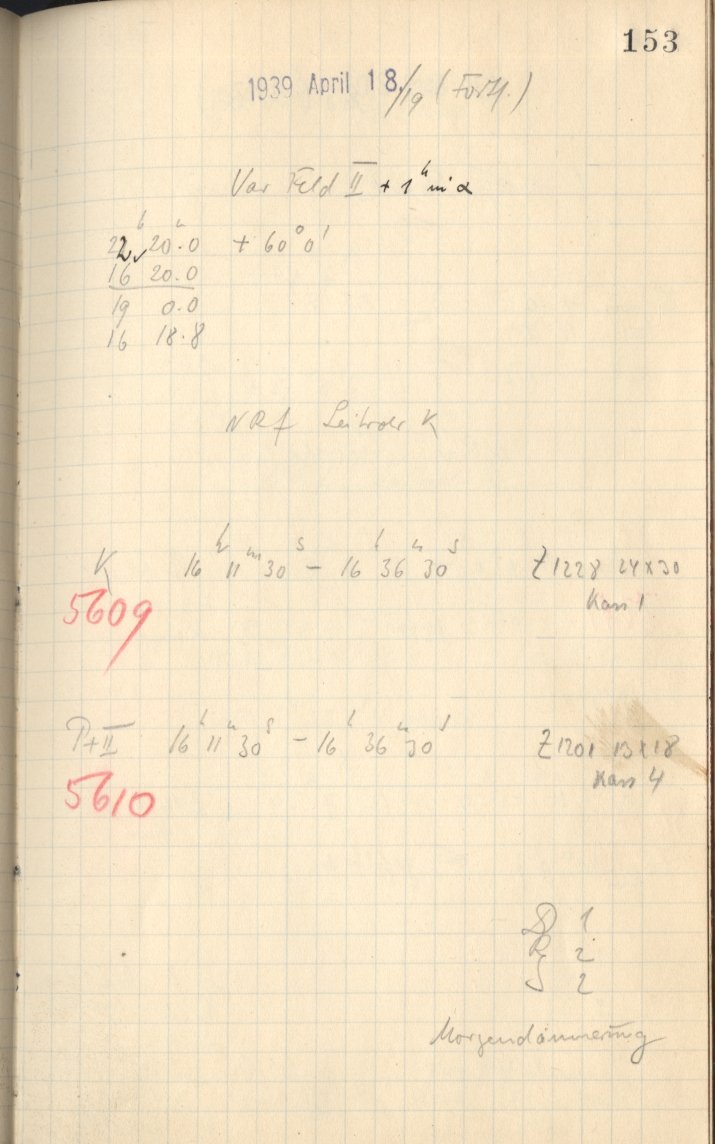 153
1939 April 18./19 (Forts.)
Var Feld II + 1ʰ in α
22ʰ 20ᵐ.0 + 60° 0'
16 20.0
19 0.0
16 18.8
NRf Leitrohr K
K 16ʰ 11ᵐ 30ˢ – 16ʰ 36ᵐ 30ˢ Z 1228 24x30
Kass 1
5609
P+II 16ʰ 11ᵐ 30ˢ – 16ʰ 36ᵐ 30ˢ Z 1201 13x18
Kass 4
5610
D 1
R 2
S 2
Morgendämmerung